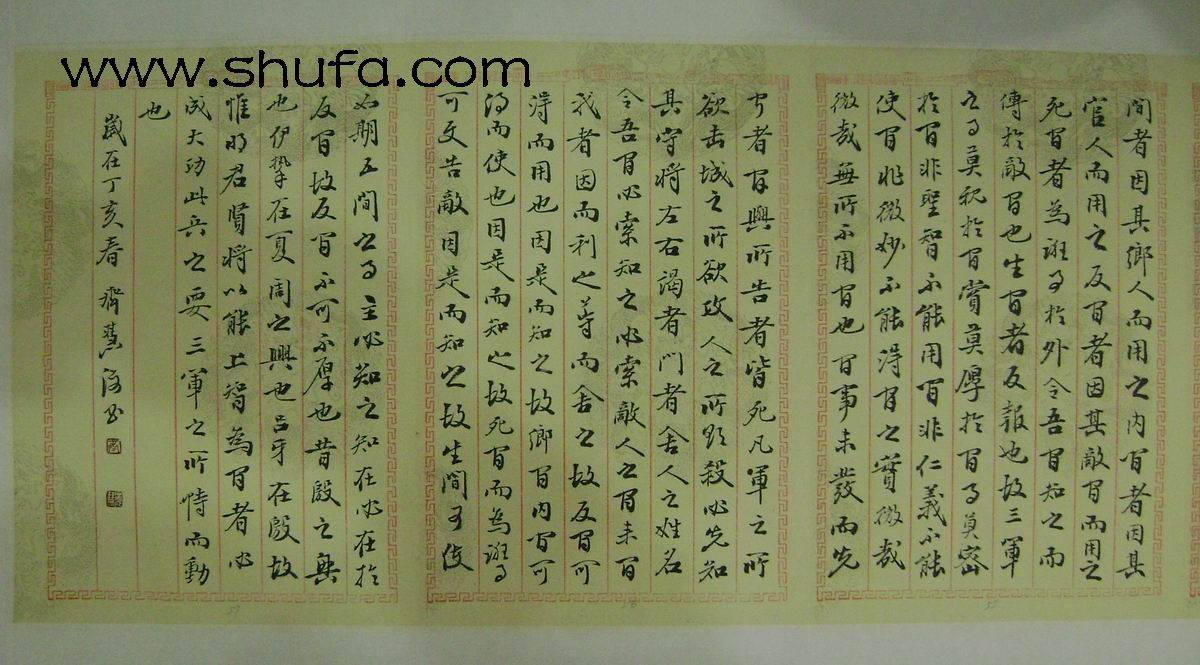 www.shufa.com
間者因其鄉人而用之內間者因其
官人而用之反間者因其敵間而用之
死間者為誑事於外令吾間知之而
傳於敵間也生間者反報也故三軍
之事莫親於間賞莫厚於間事莫密
於間非聖智不能用間非仁義不能
使間非微妙不能得間之實微哉
微哉無所不用間也間事未發而先
聞者間與所告者皆死凡軍之所
欲擊城之所欲攻人之所欲殺必先知
其守將左右謁者門者舍人之姓名
令吾間必索知之必索敵人之間來間
我者因而利之導而舍之故反間可
得而用也因是而知之故鄉間內間可
得而使也因是而知之故死間而為誑事
可使告敵因是而知之故生間可使
如期五間之事主必知之知在必在於
反間故反間不可不厚也昔殷之興
也伊摯在夏周之興也呂牙在殷故
惟明君賢將以能上智為間者必
成大功此兵之要三軍之所恃而動
也
歲在丁亥春 書